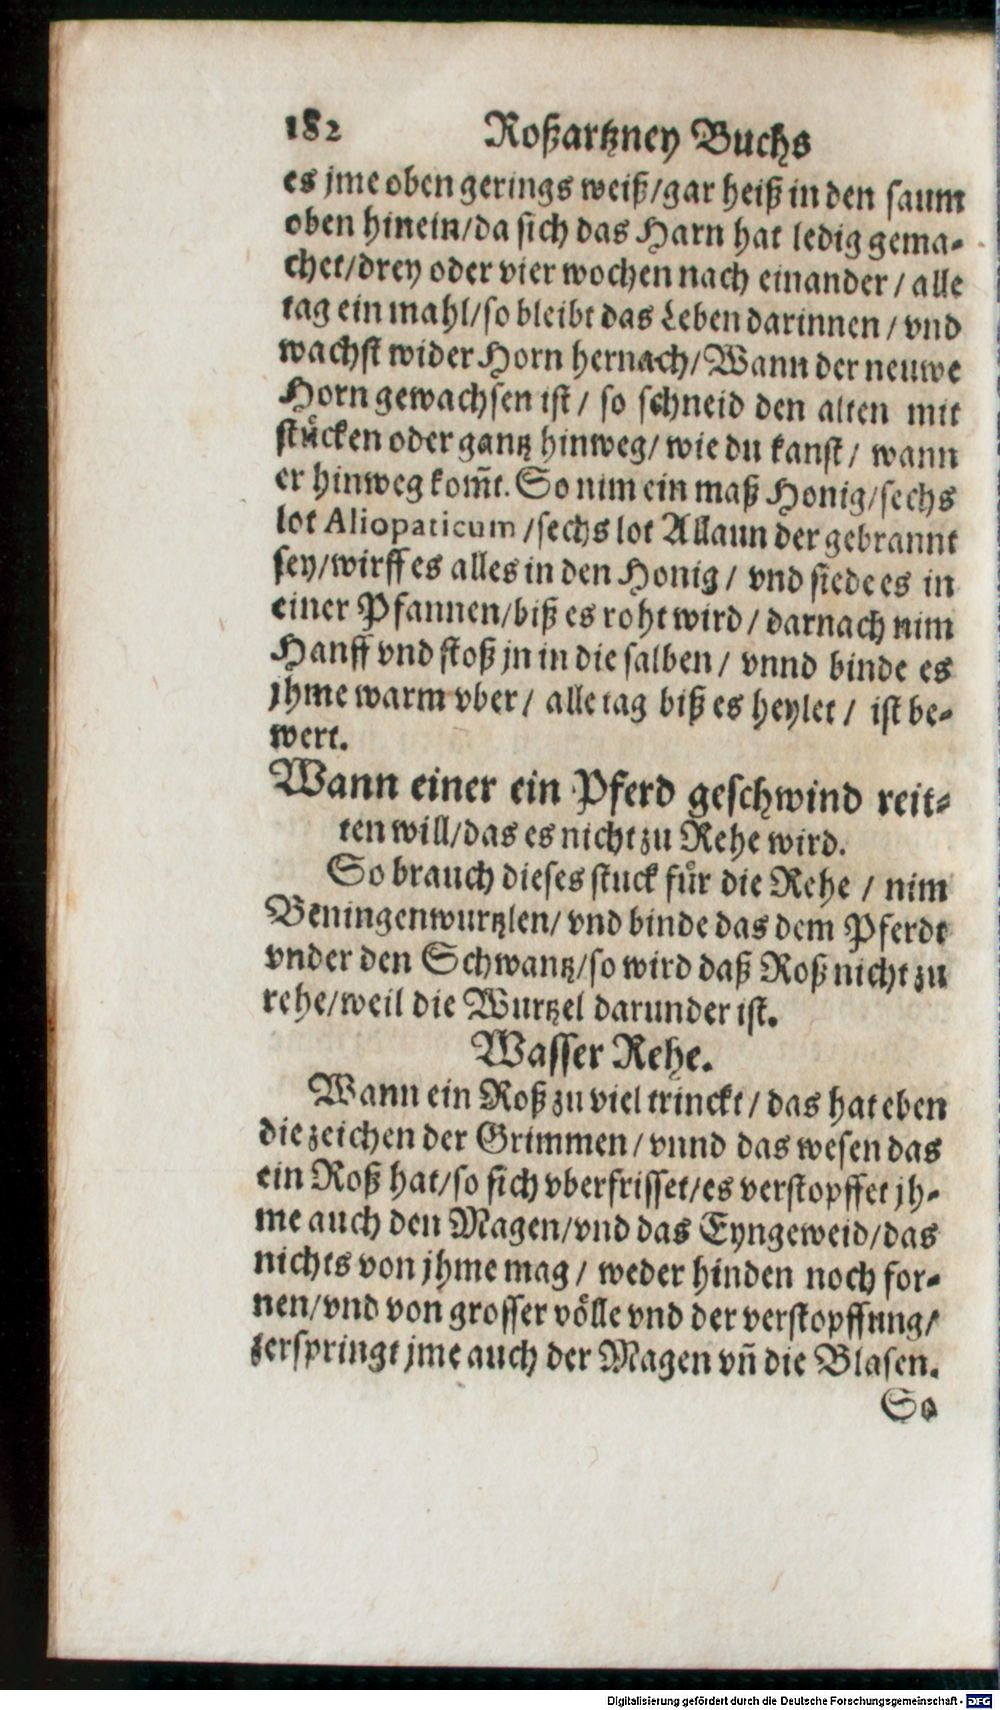 182 Roßartzney Buchs
es jme oben gerings weiß/gar heiß in den saum
oben hinein/da sich das Harn hat ledig gema-
chet/drey oder vier wochen nach einander / alle
tag ein mahl/so bleibt das Leben darinnen / vnd
wachst wider Horn hernach/Wann der neuwe
Horn gewachsen ist / so schneid den alten mit
stücken oder gantz hinweg/ wie du kanst / wann
er hinweg kom̃t. So nim ein maß Honig/sechs
lot Aliopaticum /sechs lot Allaun der gebrannt
sey/wirff es alles in den Honig / vnd siede es in
einer Pfannen/biß es roht wird / darnach nim
Hanff vnd stoß jn in die salben / vnnd binde es
jhme warm vber / alle tag biß es heylet / ist be-
wert.
Wann einer ein Pferd geschwind reit-
ten will/das es nicht zu Rehe wird.
So brauch dieses stuck für die Rehe / nim
Beningenwurtzlen/ vnd binde das dem Pferdt
vnder den Schwantz/so wird daß Roß nicht zu
rehe/weil die Wurtzel darunder ist.
Wasser Rehe.
Wann ein Roß zu viel trinckt / das hat eben
die zeichen der Grimmen / vnnd das wesen das
ein Roß hat/so sich vberfrisset/es verstopffet jh-
me auch den Magen/vnd das Eyngeweid/das
nichts von jhme mag / weder hinden noch for-
nen/vnd von grosser völle vnd der verstopffung/
zerspringt jme auch der Magen vñ die Blasen.
So
Digitalisierung gefördert durch die Deutsche Forschungsgemeinschaft - DFG